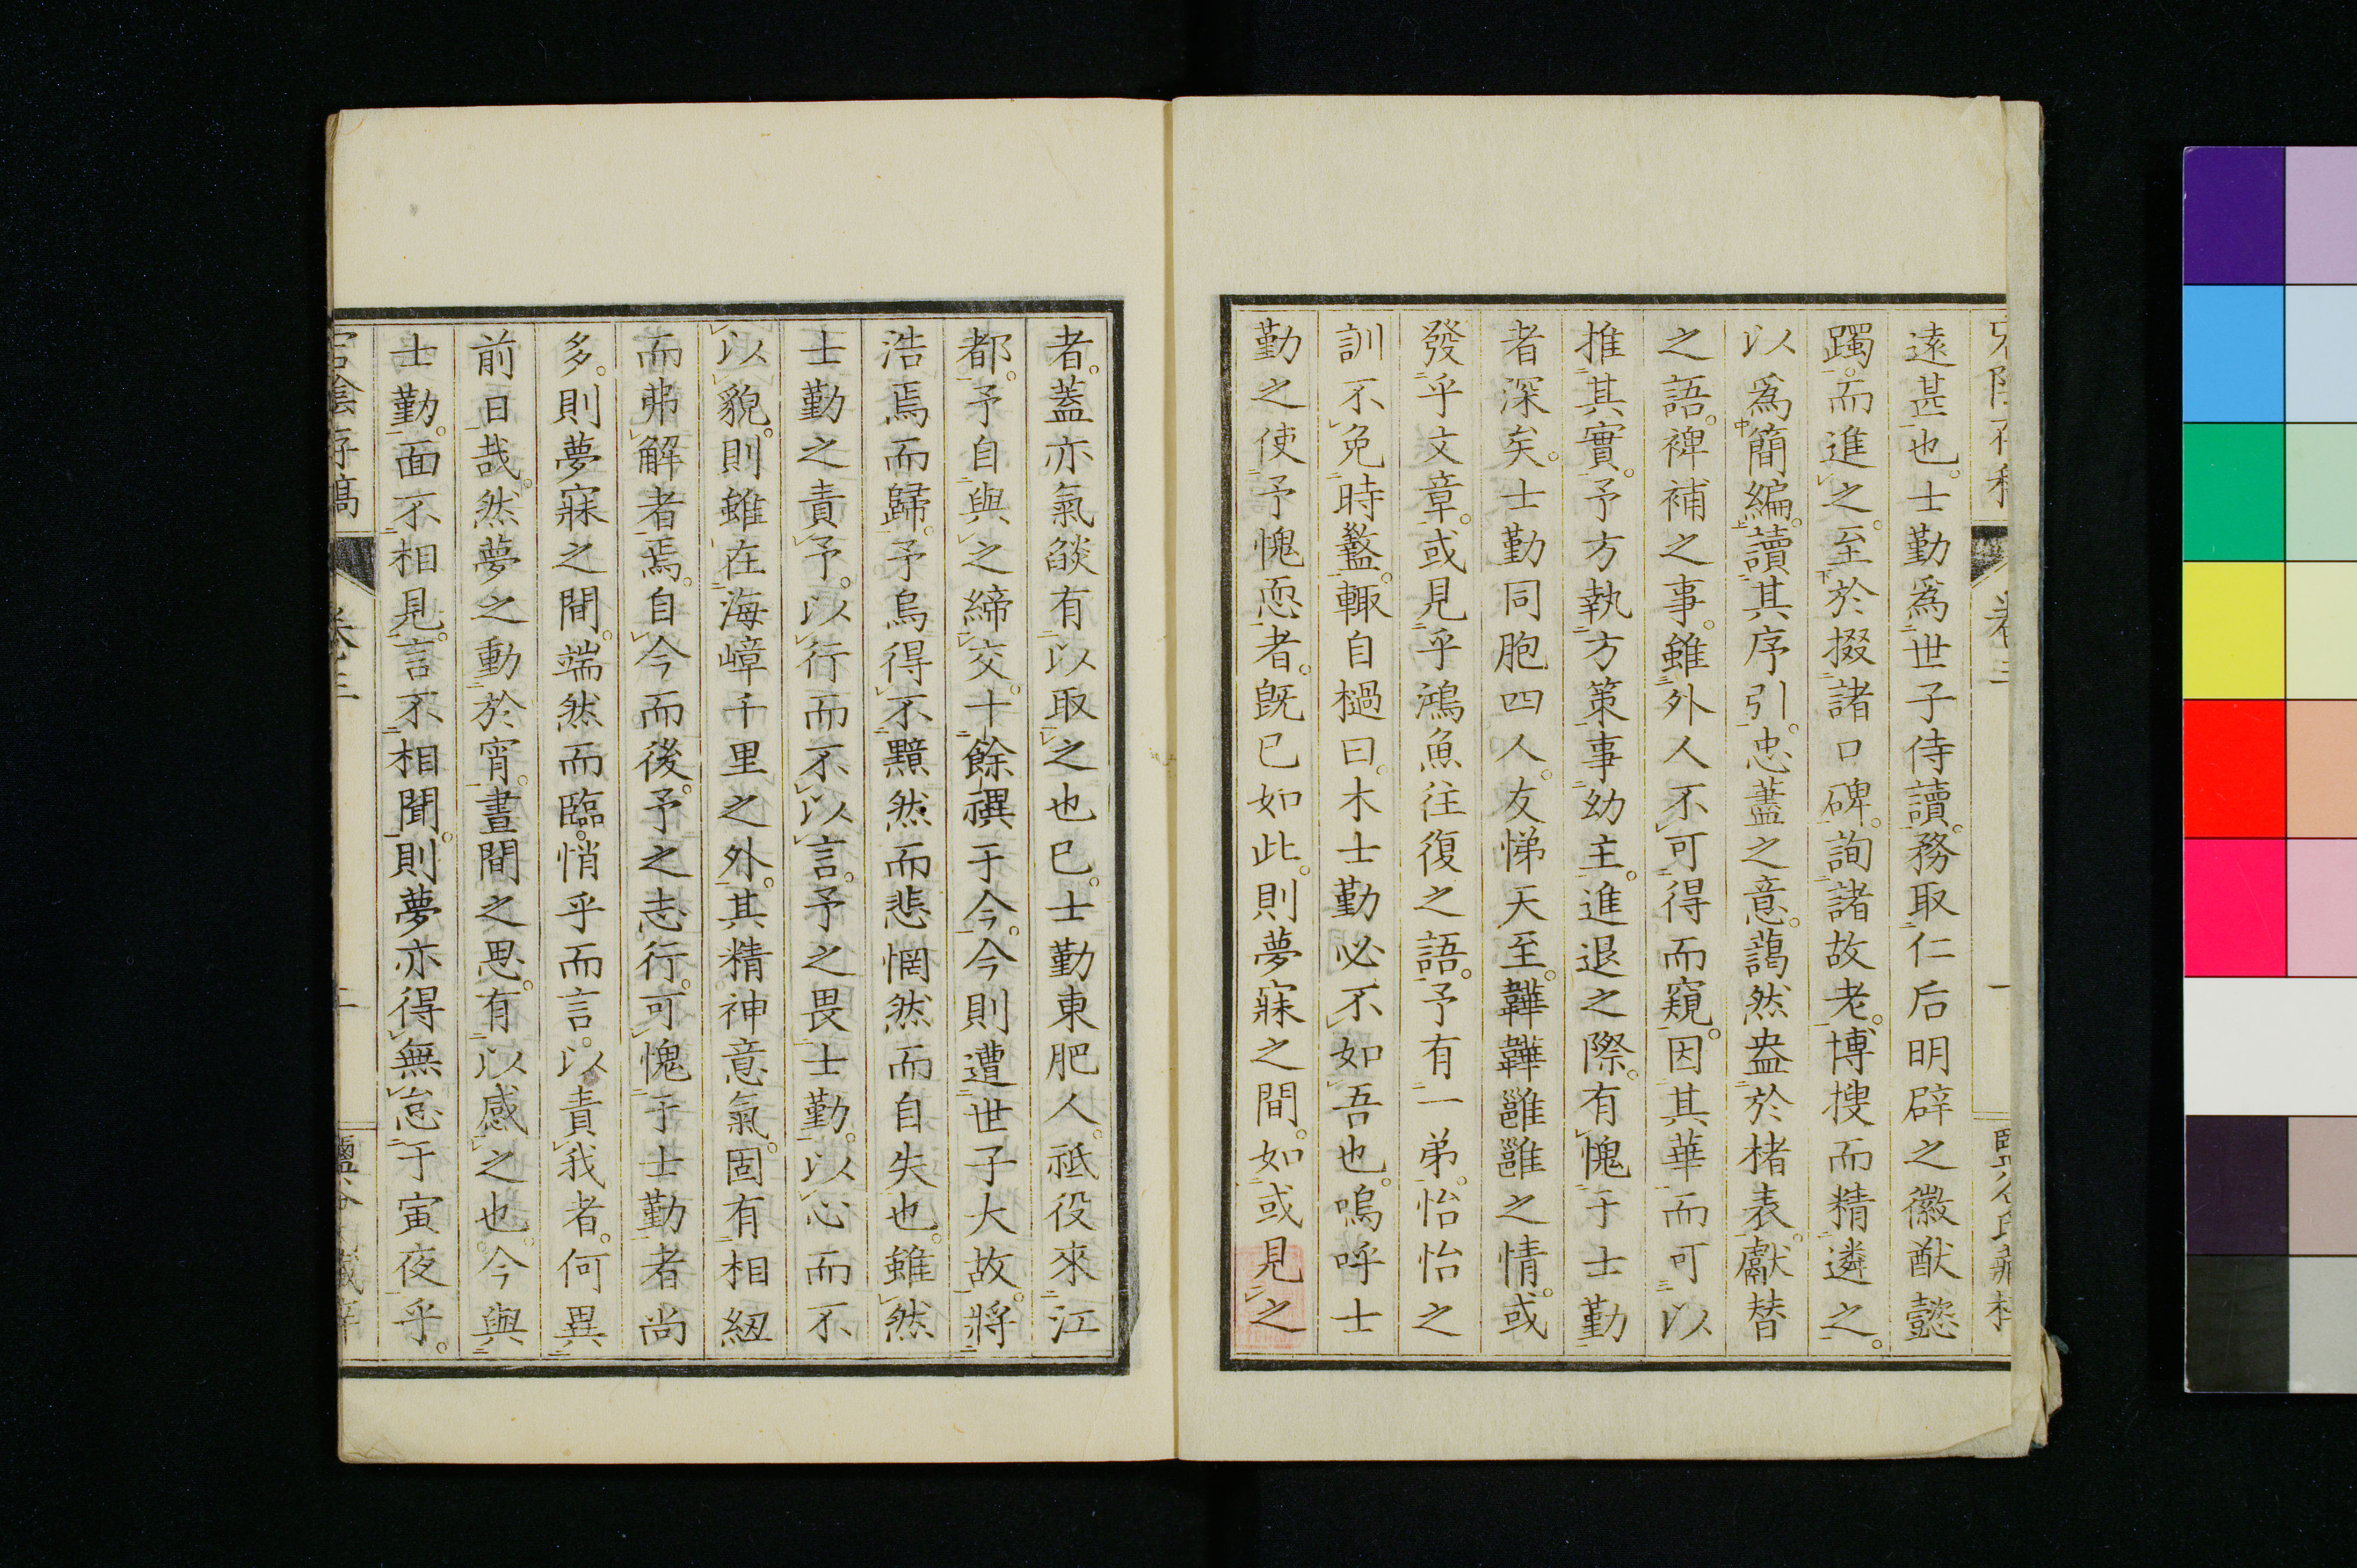 遠甚也。士勤爲世子侍讀。務取仁后明辟之徽猷懿
躅。而進之。至於掇諸口碑。詢諸故老。博搜而精遴之。
以爲簡編。讀其序引。忠藎之意。藹然盎於楮表。獻替
之語。裨補之事。雖外人不可得而窺。因其華而可以
推其實。予方執方策事幼主。進退之際。有愧于士勤
者深矣。士勤同胞四人。友悌天至。韡韡雝雝之情。或
發乎文章。或見乎鴻魚往復之語。予有一弟。怡怡之
訓不免時盭。輒自撾曰。木士勤必不如吾也。嗚呼士
勤之使予愧恧者。旣已如此。則夢寐之間。如或見之
者。蓋亦氣燄有以取之也已。士勤東肥人。祗役來江
都。予自與之締交。十餘禩于今。今則遭世子大故。將
浩焉而歸。予烏得不黯然而悲惘然而自失也。雖然
士勤之責予。以行而不以言。予之畏士勤。以心而不
以貌。則雖在海嶂千里之外。其精神意氣。固有相紉
而弗解者焉。自今而後。予之志行。可愧于士勤者尚
多。則夢寐之間。端然而臨。悄乎而言。以責我者。何異
前日哉。然夢之動於宵。晝間之思。有以感之也。今與
士勤。面不相見。言不相聞。則夢亦得無怠于寅夜乎。
卷三
二